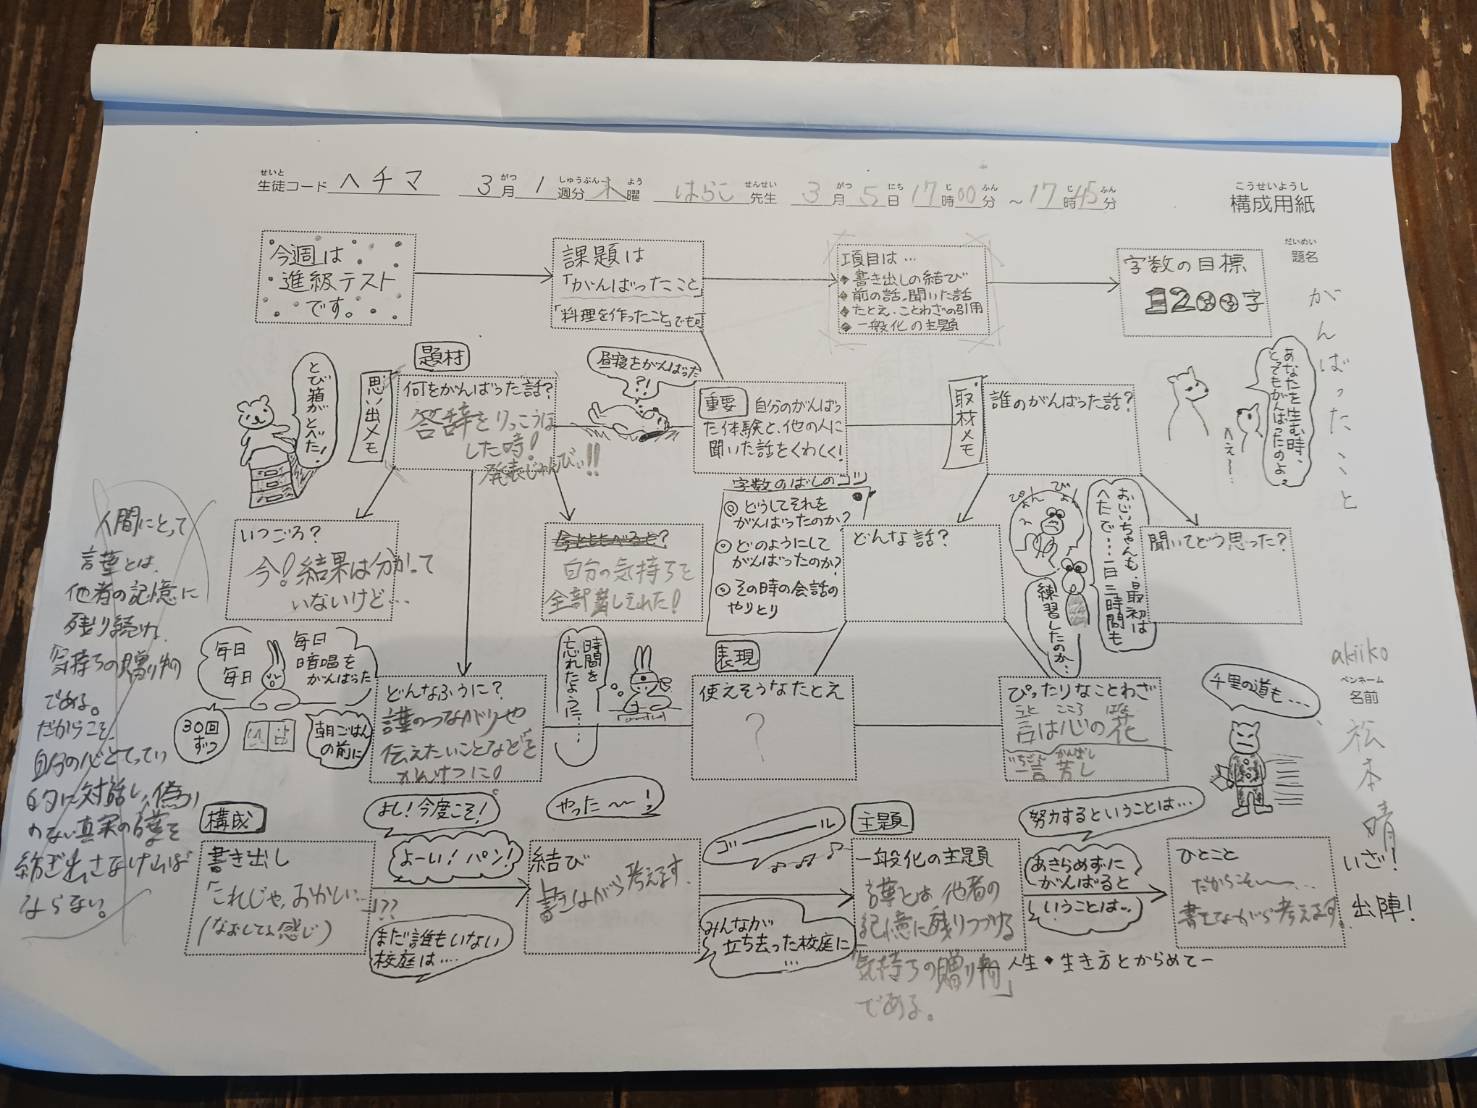 生徒コード ヘチマ 3月1週分 木曜 はらこ先生 3月5日17時00分～17時45分
せいと がつ しゅうぶん よう せんせい がつ にち じ ふん じ ふん
こうせいようし
構成用紙
だいめい
題名
がんばったこと
今週は
進級テスト
です。
課題は
「がんばったこと」
「料理を作ったこと」でも可
項目は…
◆書き出しの結び
◆前の話・聞いた話
◆たとえ・ことわざの引用
◆一般化の主題
字数の目標
1200字
とび箱がとべた!
思い出メモ
題材
何をがんばった話?
答辞をりっこうほ
した時!
発表じゅんびぃ!!
昼寝をがんばった
?!
重要
自分のがんばっ
た体験と、他の人に
聞いた話をくわしく!
取材メモ
誰のがんばった話?
あなたを生む時、
とてもがんばったのよ。
へぇ~
いつごろ?
今!結果は分かって
いないけど…
自分の気持ちを
字数のばしのコツ
どうしてそれを
がんばったのか?
どのようにして
がんばったのか?
その時の会話の
やりとり
どんな話?
ぴょん
ぴょん
おじいちゃんも、最初は
へたで…一日三時間も
練習したのか…
聞いてどう思った?
人間にとって
言葉とは、
他者の記憶に
残り続ける
気持ちの贈り物
である。
だからこそ、
自分の心とてってい
的に対話し、偽り
のない真実の言葉を
紡ぎ出さなければ
ならない。
毎日
毎日
毎日
暗唱を
がんばった
30回
ずつ
朝ごはん
の前に
どんなふうに?
言葉のつながりや
伝えたいことなどを
かんけつに!
時間を
忘れたように…
表現
使えそうなたとえ
?
ぴったりなことわざ
こと こころ はな
言は心の花
いちごん かんばし
一言芳し
千里の道も…
akiiko
ペンネーム
名前
松本晴
構成
書き出し
「これじゃ、おかしい…
(なおしてる感じ)
!??
よし!今度こそ!
よーい!パン!
まだ誰もいない
校庭は…
やった~!!
結び
書きながら考えます.
ゴール
みんなが
立ち去った校庭に
…
主題
一般化の主題
言葉とは、他者の
記憶に残りつづける
「気持ちの贈り物」
である。
努力するということは…
あきらめずに
がんばると
いうことは…
人生・生き方とからめてー
ひとこと
だからこそ~…
書きながら考えます。
いざ!
出陣!